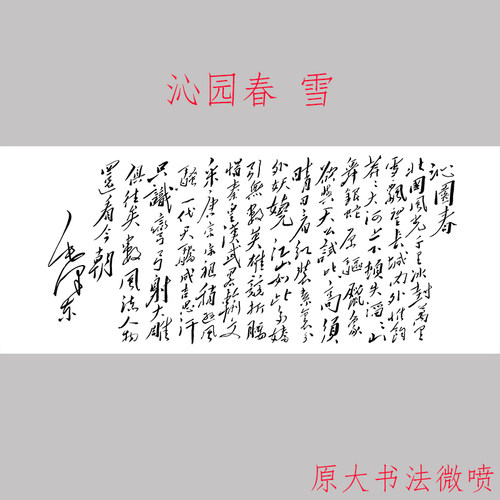 沁园春 雪
沁園春
北國風光千里冰封萬里
雪飄望長城内外惟餘
莽々大河上下頓失滔々山
舞銀蛇原驅臘象
欲與天公試比高須
晴日看红裝素裹分
外妖嬈江山如此多嬌
引無數英雄競折腰
惜秦皇漢武畧輸文
采唐宗宋祖稍遜風
騷一代天驕成吉思汗
只識彎弓射大雕
俱往矣數風流人物
還看今朝
毛澤東
原大书法微喷